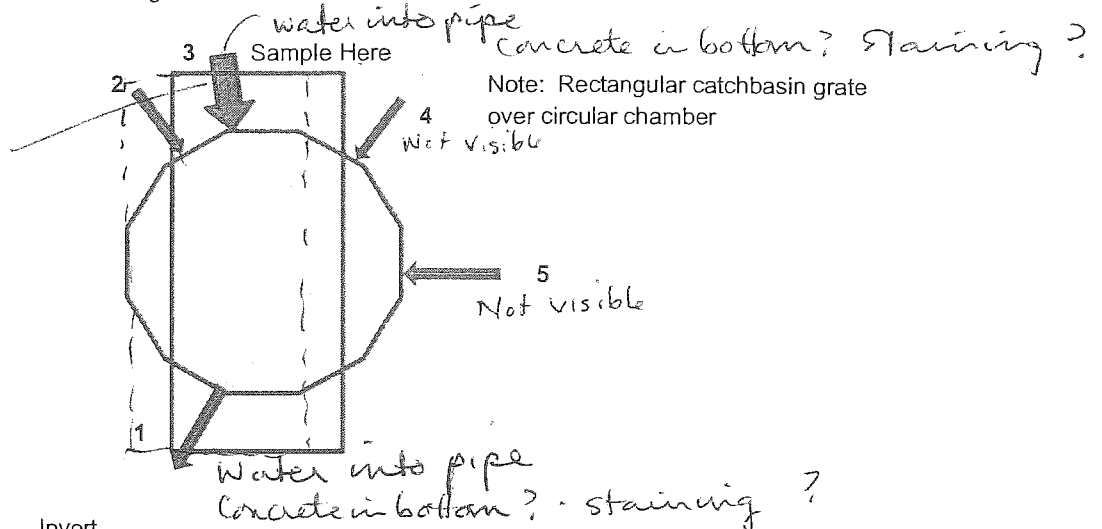 water into pipe
Concrete in bottom? Staining ?
3 Sample Here
2
Note: Rectangular catchbasin grate
4 over circular chamber
Not visible
5
Not visible
1
Water into pipe
Concrete in bottom? . staining ?
Invert